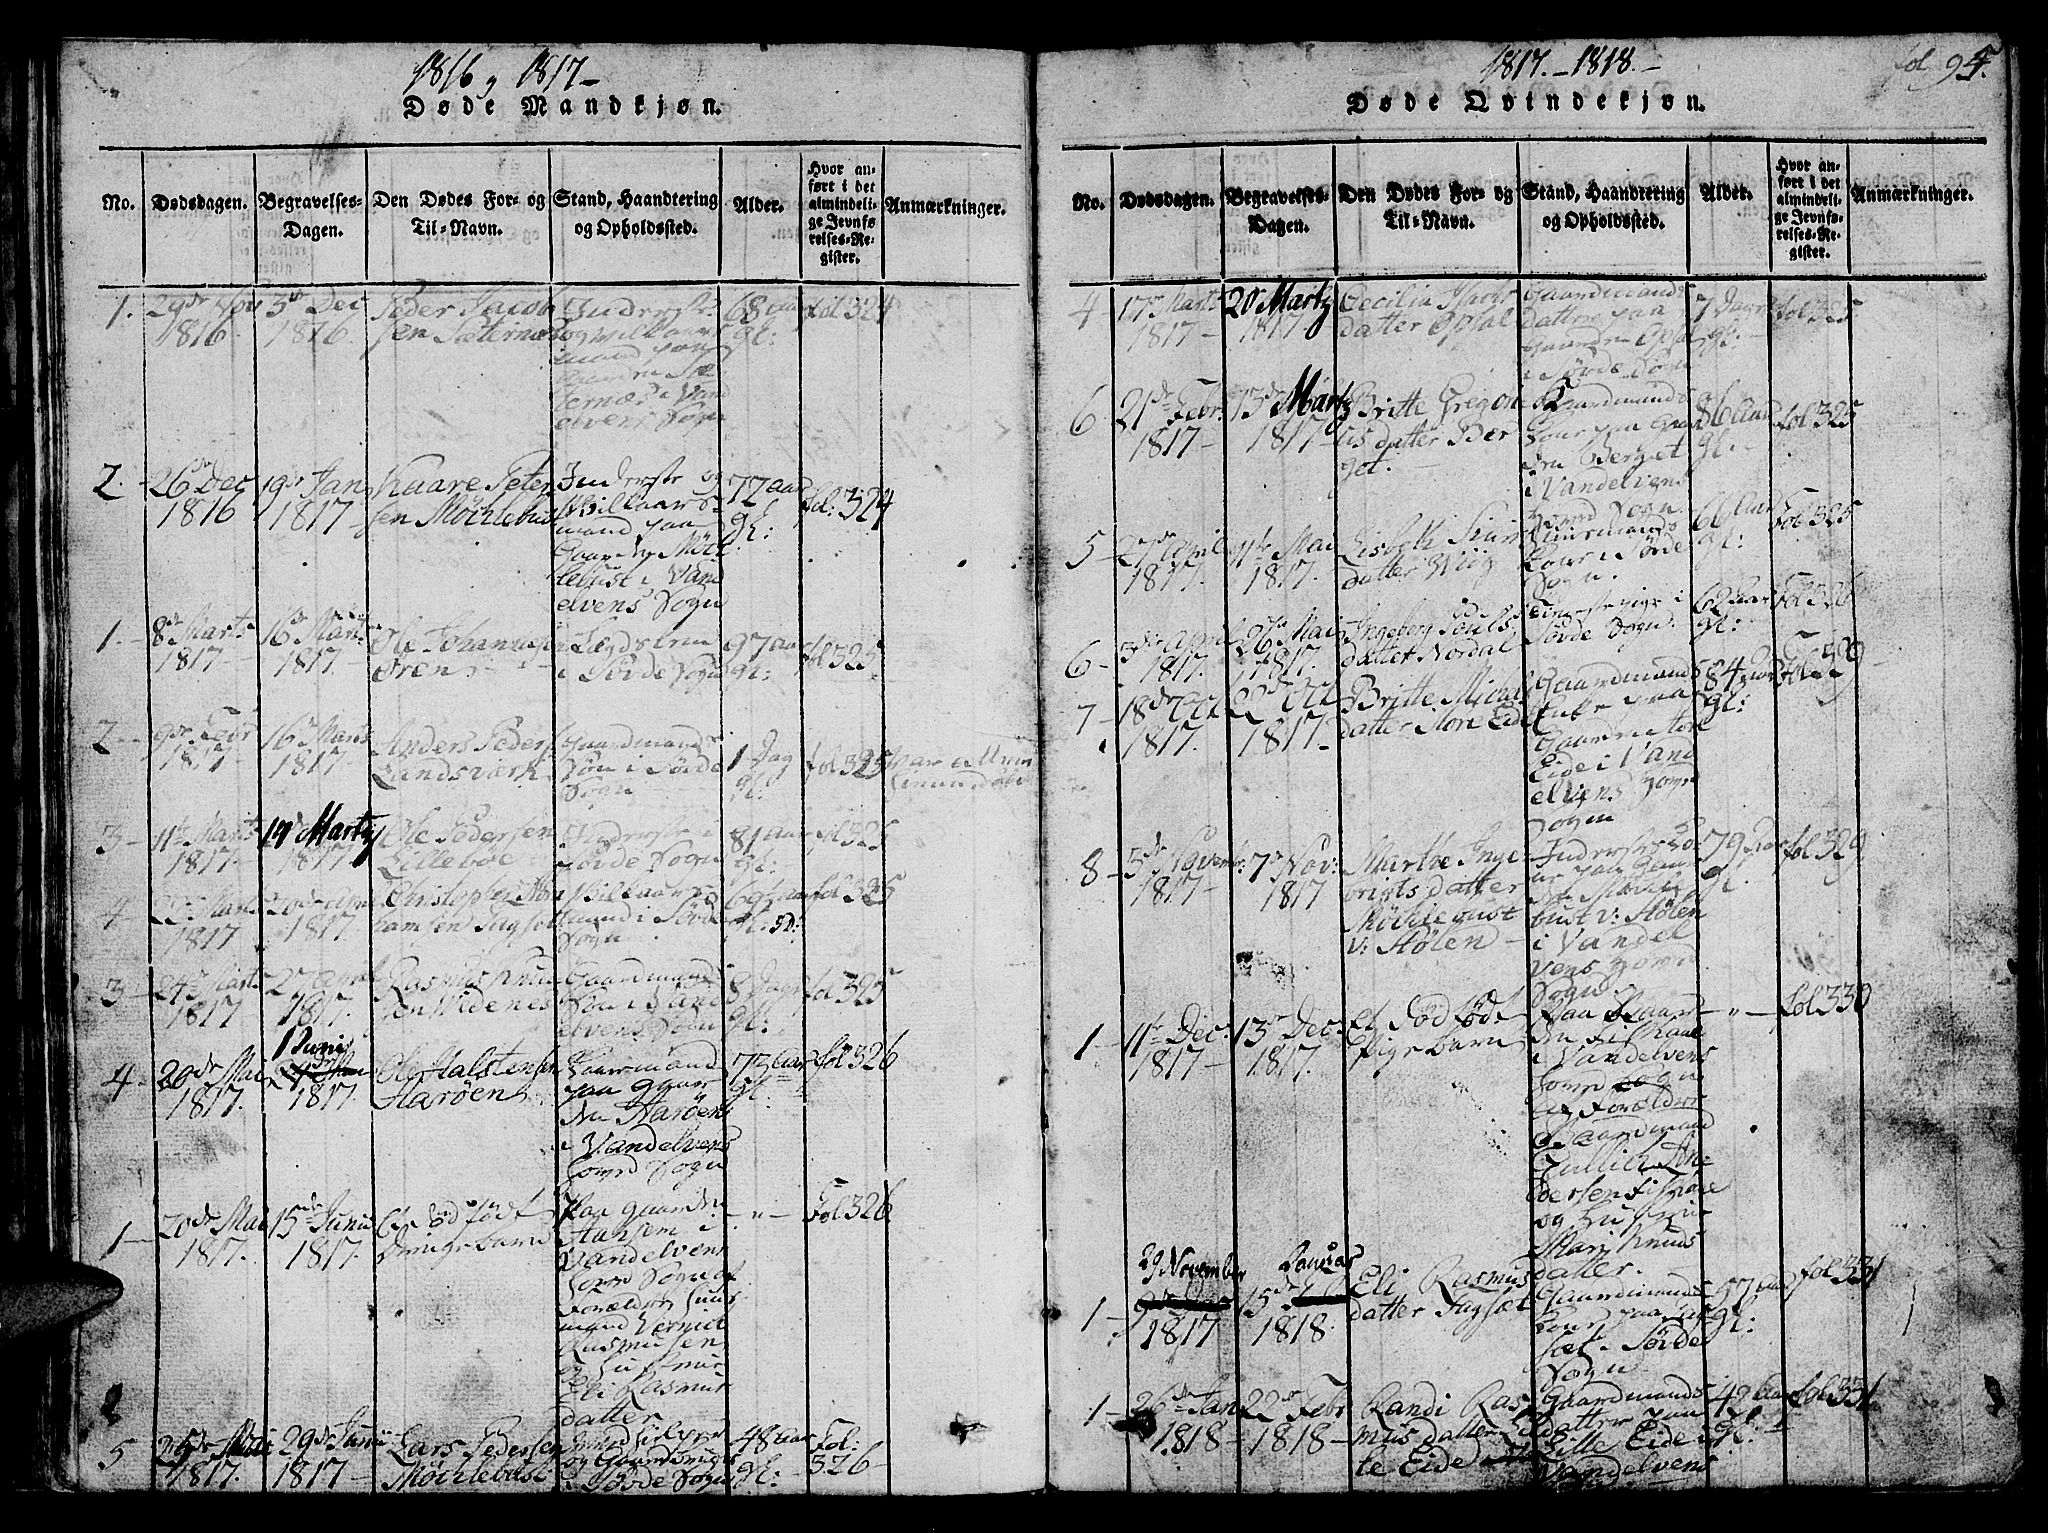 1816, 1817-
Døde Mandkjøn.
No.
Dødsdagen.
Begravelses-
Dagen.
Den Dødes For- og
Til-Navn.
Stand, Haandtering
og Opholdssted.
Alder.
Hvor an-
ført i det
almindeli-
ge Jevnfø-
relses-Re-
gister.
Anmærkninger.
1. 29de Nov
1816.
5te Dec
1816.
Peder Jacob
sen Sæternæs
Inderste
og Vilkaars
mand paa
Gaarden Sæ
ternæs i Vand
elvens Sogn
68 aar
gl:
fol 324
2. 26de Dec
1816
19de Jan
1817
Kaare Peter
sen Møchlebust
Inderste og
Vilkaars
mand paa
Gaarden Møch
lebust i Van
elvens Sogn
77 aar
gl:
fol: 324
1. 8de Marts
1817
16de Marts
1817
Ole Johannesen
Ören
Lægdslem
i Søvde Sogn
97 aar
gl:
fol 325
2 9de Febr
1817
16de Marts
1817
Anders Peders
Landsværk
Gaardmands
Søn i Søvde
Sogn
1 Dag
gl:
fol 325
3 11te Marts
1817
19de Martz
1817
Ole Pedersen
Lillebøe
Inderste i
Søvde Sogn
81 aar
gl:
fol 325
4
1817
20de Apr
1817
Christopher
Vilkaars
mand i Søvde
Sogn
69 aar
gl:
fol 325
3 24de Marts
1817
27 April
1817.
Rasmus Knud
sen Videnes
Gaardmands
Søn i Vand
elvens Sogn
8 Dage
gl:
fol 325
4 20de Mai
1817.
1 Juni
1817
Ole Halstensen
Haröen
Gaardmand
paa Gaar
den Haröen
i Vandelvens
Hoved Sogn
73 Aar
gl.
fol 326
1 20de Mai
1817.
15de Junii
1817.
Et Död födt
Drengebarn
Paa Gaarden
Aahjem i
Vandelvens
Hoved Sogn af
Forældre Huus
mand Vernick
Rasmusen
og Hustrue
Eli Rasmus
datter
- " -
Fol 326
5 25de Mai
1817.
29de Junii
1817
Lars Pedersen
Møchlebust
og Gaardmand
i Søvde Sogn
48 Aar
gl:
Fol:
326
1817.-1818.-
fol 95.
Døde Qvindekjøn.
No.
Dødsdagen.
Begravelses-
Dagen.
Den Dødes For- og
Til-Navn.
Stand, Haandtering
og Opholdssted.
Alder.
Hvor an-
ført i det
almindeli-
ge Jevnfø-
relses-Re-
gister.
Anmærkninger.
4 17de Marts
1817
20 Martz
1817.
Cecilia
datter Opsal
Gaardmands
datter paa
Gaarden Opsal
i Søvde Sogn
7 Dage
gl:
fol 325
6 21de Febr
1817
13de Martz
1817
Britte Gregori
us datter Ber
get.
Gaardmands
Kone paa Gaar
den Berget
i Vandelvens
Hoved Sogn.
86 Aar
gl:
fol 325
5 27de April
1817.
11te Mai
1817.
Lisbeth
datter Wiig
Huusmands
Kone i Søvde
Sogn.
66 Aar
gl:
Fol 325
6 3de April
1817.
26de Mai
1817.
Ingeborg Pouls
datter Nordal
Tienestepige i
Søvde Sogn.
62 Aar
gl.
Fol 326
7 18de Oct
1817.
22de Oct
1817
Britte Michel
datter Store Eide
Gaardmands
Enke paa
Gaarden Store
Eide i Vand
elvens Hoved
Sogn
84 Aar
gl:
Fol 329
8 5de November
1817
7de Nov:
1817
Marthe Inge
brigts datter
Møchlebust
v: Stölen
bust v: Stölen
i Vandel
vens Hoved
Sogn
79 Aar
gl.
fol 329
1 11te Dec:
1817
13de Dec:
1817.
Et Död födt
Pigebarn
Paa Gaar
den Fiskaae
i Vandelvens
Hoved Sogn
af Forældre
Gaardmand
An
dersen Fiskaae
og Hustrue
Mari Knuds
datter.
- " -
fol 330
1 29 November
1817
15de Januar
1818.
Eli Rasmus
datter Fagsæt
Gaardmands
Kone paa Fag
sæt i Søvde
Sogn
57 Aar
gl:
fol 331
1 26de Jan
1818
22de Febr
1818
Randi Ras
mus datter Lil
te Eide
Gaardmands
datter paa
Lille Eide i
Vandelvens
42 Aar
gl:
fol 331